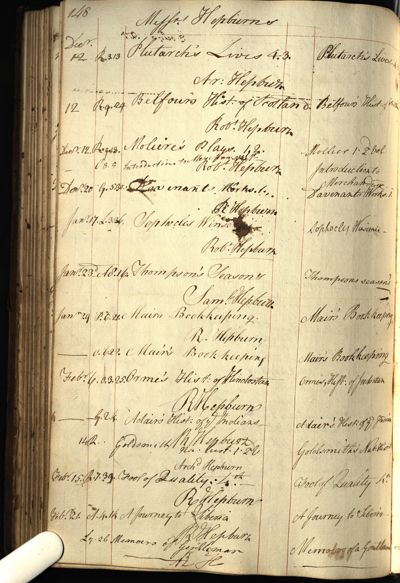 148
Messrs Hepburns
Decr.
12 R.3.13 Plutarch's Lives 4.3. Plutarch's Lives
Ar: Hepburn
12 R.9.24 Belfour's Hist. of Scotland Belfour's Hist. of
Robt. Hepburn
Decr. 12 Moliere's Plays Moliere 1. 2 vol
Introduction to Introduction to
Robt. Hepburn Merchandize
Decr. 20 Davenants Works Davenants Works 1.
R Hepburn
Janry. 17 Sophocles Sophocles
Robt. Hepburn
Janry. 23 Thompson's Seasons Thompsons seasons
Saml. Hepburn
Janry 24 Mairs Bookkeeping Mair's Bookkeeping
R. Hepburn
Mair's Bookkeeping Mairs Bookkeeping
Febry. 6. Orme's Hist. of Hindostan Ormes Hist. of Indostan
R Hepburn
6 Adair's Hist. of ye Indians Adair's Hist. of ye
R Hepburn
Goldsmiths Nat. Hist. 1. 2 Goldsmith's Nat Hist
Archd Hepburn
Feb. 15. Fool of Quality 4th Fool of Quality 4
Ro Hepburn
Feb. 21. A Journey to Siberia A Journey to Siberia
R Hepburn
Ly.26 Memoirs of a Gentleman Memoirs of a Gentleman
R H